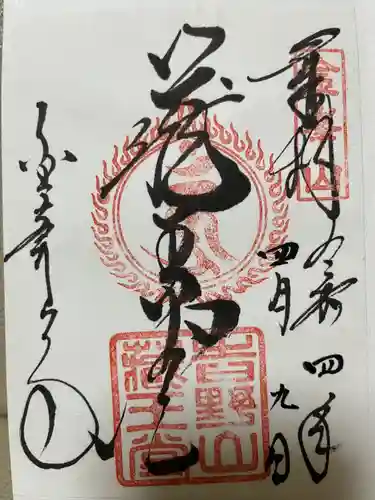 奉拝 令和四年
四月九日
蔵王堂
金峯山寺
金峯山
吉野山
蔵王堂